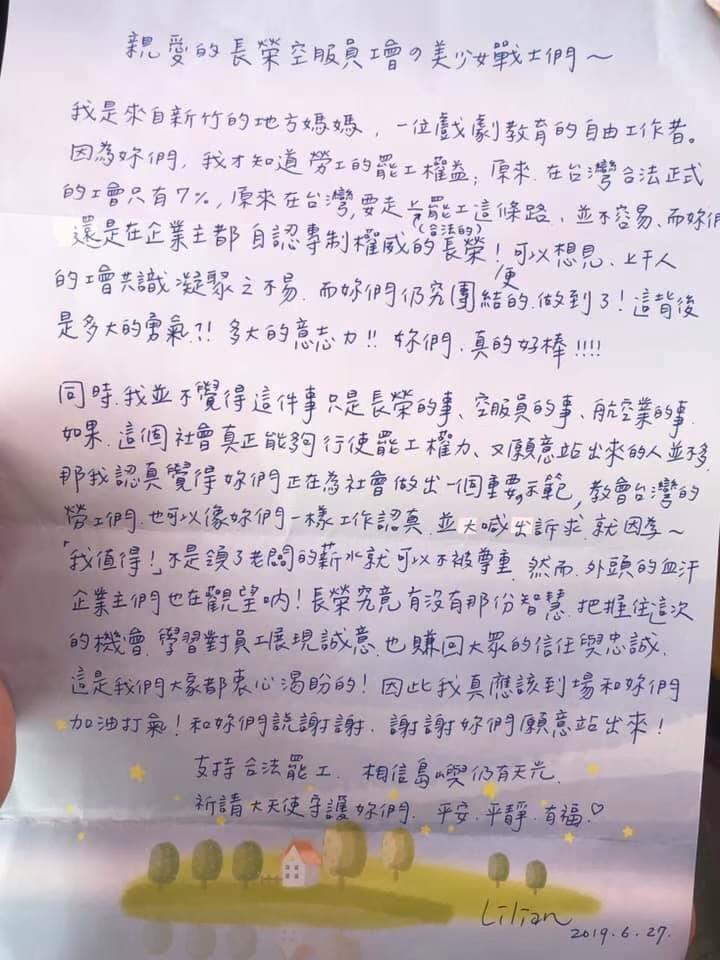 親愛的長榮空服員工會の美少女戰士們～
我是來自新竹的地方媽媽，一位戲劇教育的自由工作者。
因為妳們，我才知道勞工的罷工權益；原來在台灣合法正式
的工會只有7%，原來在台灣，要走上罷工這條路，並不容易、而妳們
(合法的)
還是在企業主都自認專制權威的長榮！可以想見、上千人
的工會共識凝聚之不易，而妳們仍究便團結的做到了！這背後
是多大的勇氣?! 多大的意志力!! 妳們，真的好棒!!!!
同時，我並不覺得這件事只是長榮的事、空服員的事、航空業的事，
如果，這個社會真正能夠行使罷工權力、又願意站出來的人並不多，
那我認真覺得妳們正在為社會做出一個重要示範，教會台灣的
勞工們，也可以像妳們一樣工作認真，並大喊出訴求，就因為～
「我值得！」不是領了老闆的薪水就可以不被尊重，然而，外頭的血汗
企業主們也在觀望吶！長榮究竟有沒有那份智慧，把握住這次
的機會，學習對員工展現誠意，也賺回大眾的信任與忠誠，
這是我們大家都衷心渴盼的！因此我真應該到場和妳們
加油打氣！和妳們說謝謝，謝謝妳們願意站出來！
支持合法罷工，相信島嶼仍有天光，
祈請大天使守護妳們，平安，平靜，有福♡
Lilian
2019.6.27.